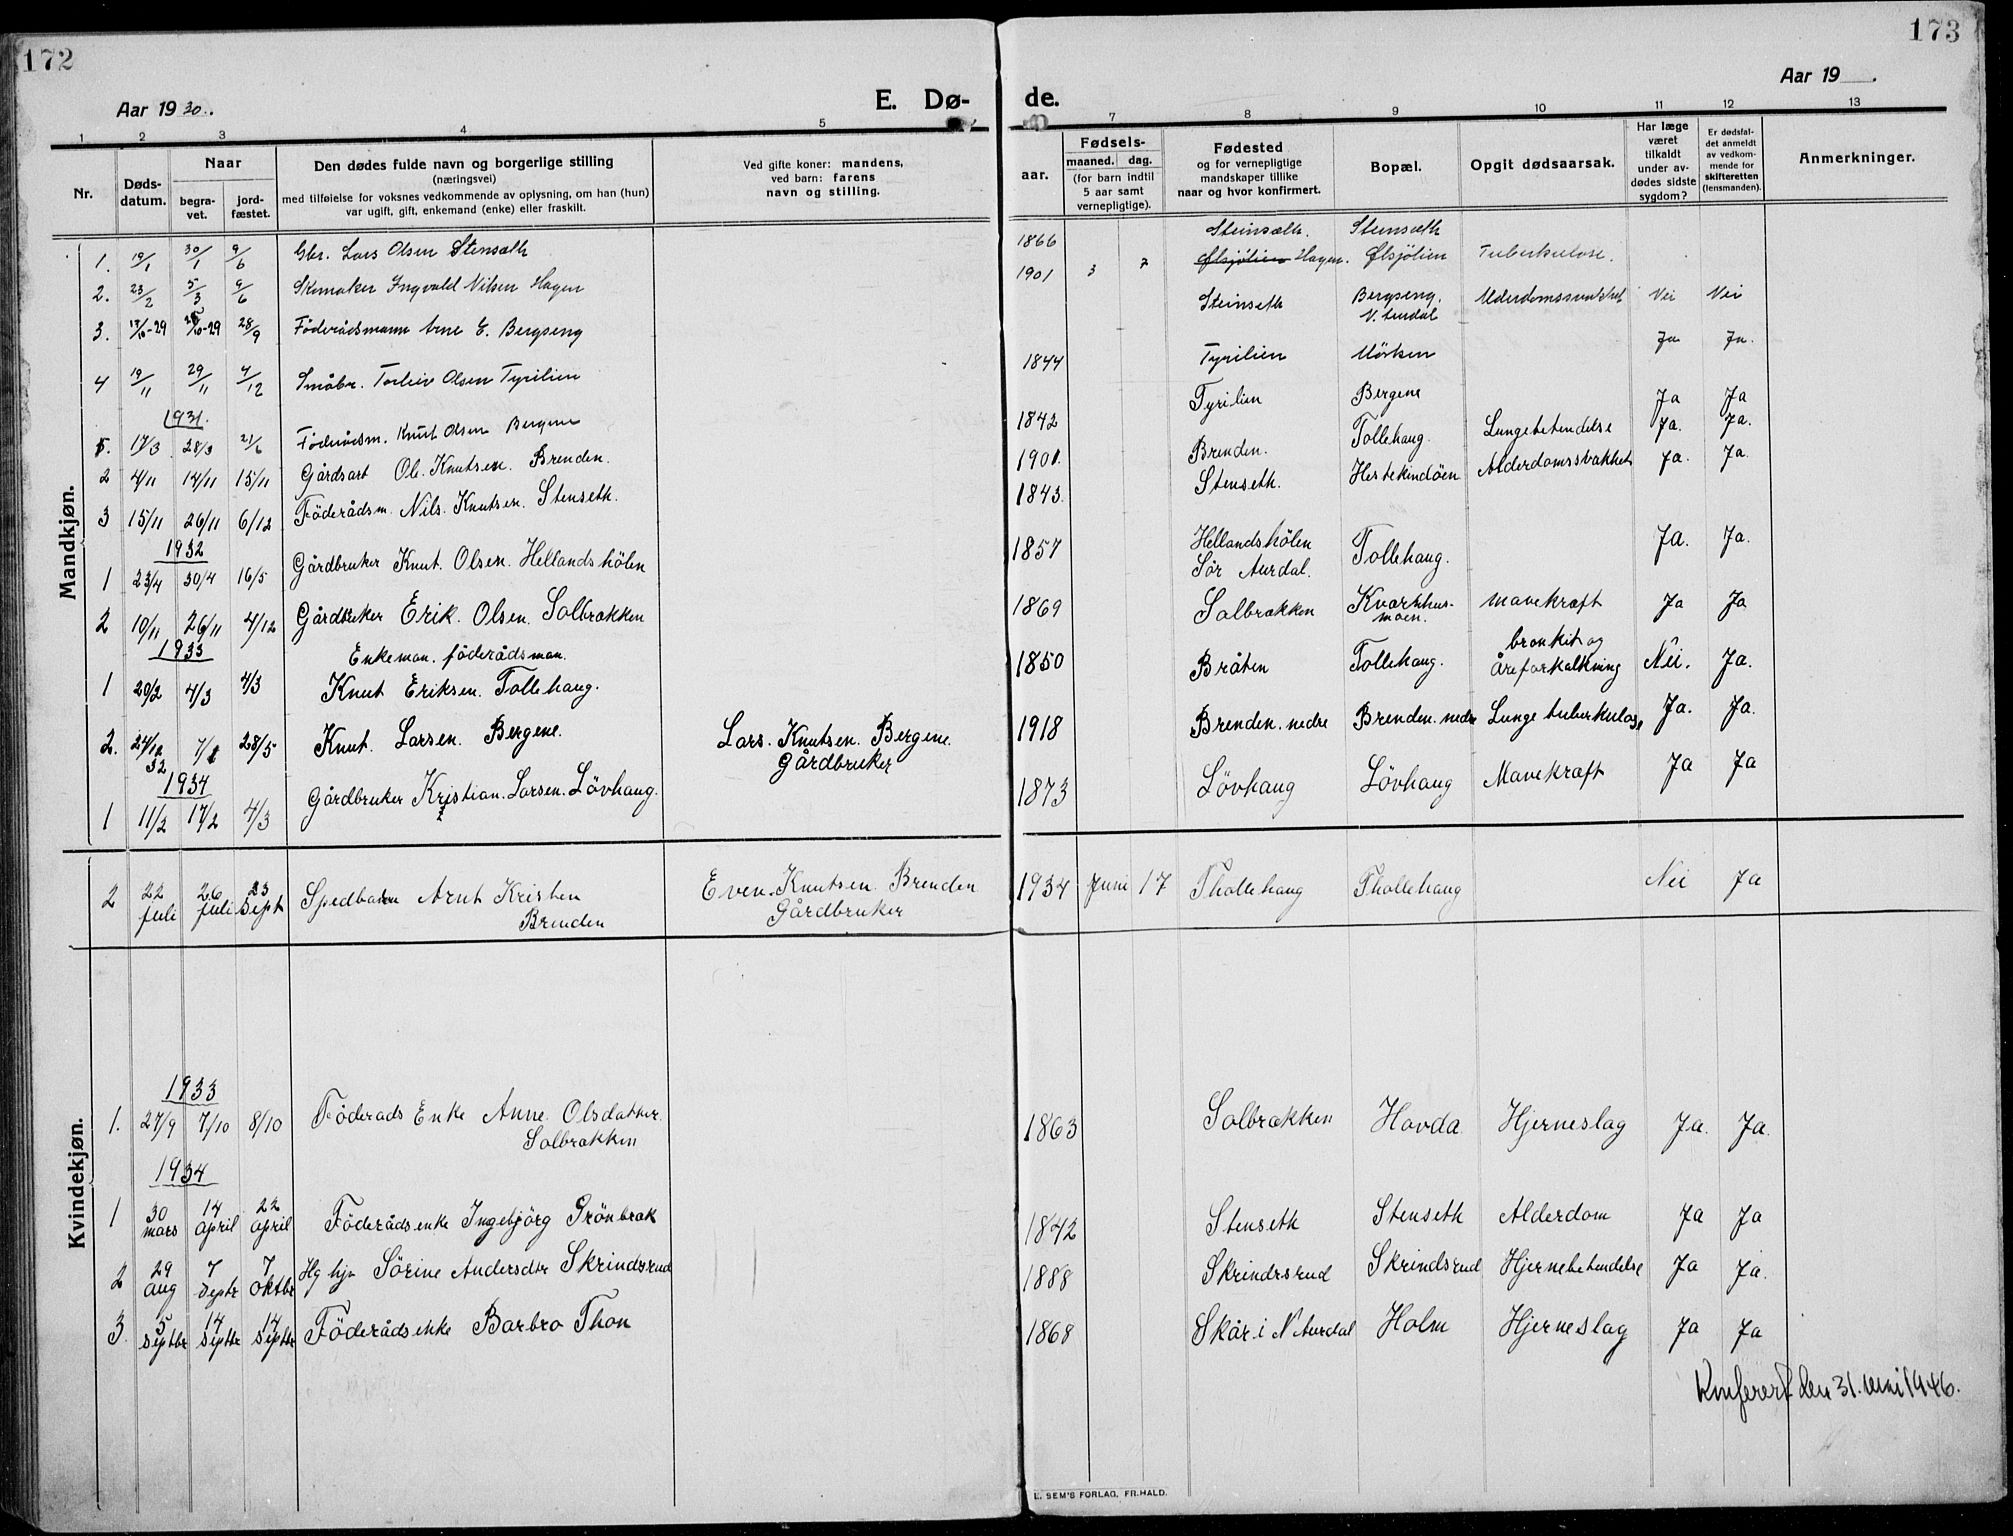 172
Aar 1930.
E. Dø-
1 2 3 4 5
Nr.
Døds-
datum.
Naar
begra-
vet.
jord-
fæstet.
Den dødes fulde navn og borgerlige stilling
(næringsvei)
med tilføielse for voksnes vedkommende av oplysning, om han (hun)
var ugift, gift, enkemand (enke) eller fraskilt.
Ved gifte koner: mandens,
ved barn: farens
navn og stilling.
Mandkjøn.
1. 19/1 30/1 9/6 Gbr. Lars Olsen Stensæth
2. 23/2 5/3 9/6 Skomaker Ingvald Nilsen Hagen
3. 28/9 Föderådsmann Arne E. Bergseng
4 19/11 29/11 4/12 Småbr. Torleiv Olsen Tyrilien
1931.
1. 17/3 28/3 21/6 Föderådsm. Knut Olsen Bergene
2 4/11 14/11 15/11 Gårdsart Ol. Knutsen. Brenden.
3 15/11 26/11 6/12 Föderådsm. Nils. Knutsen. Stenseth.
1932
1 23/4 30/4 16/5 Gårdbruker Knut. Olsen. Hellandshölen
2 10/11 26/11 4/12 Gårdbruker Erik. Olsen. Solbrækken
1933
Enkeman. föderådsman.
1 20/2 4/3 4/3 Knut Eriksen. Tollehaug.
2. 27/12 32 7/1 28/5 Knut. Larsen. Bergene. Lars. Knutsen. Bergene.
Gårdbruker
1934
1 11/2 17/2 4/3 Gårdbruker Kristian. Larsen. Lövhaug.
2 22 juli 26 juli 23 Sept Spedbarn Arnt Kristen
Brenden
Even. Knutsen. Brenden
Gårdbruker
Kvindekjøn.
1933
1. 27/9 7/10 8/10 Föderads Enke Anne Olsdatter.
Solbrækken
1934
1 30 mars 14 april 22 april Föderådsenke Ingebjörg Grönbræk
2 29 aug 7 septr 7 oktbr Hg hje Sörine Andersdtr Skrindsrud
3. 5 septbr 14 septbr 14 septbr Föderådsenke Barbro Thon
173
Aar 19
de.
7 8 9 10 11 12 13
aar.
Fødsels-
maaned. dag.
(for barn indtil
5 aar samt
vernepligtige).
Fødested
og for vernepligtige
mandskaper tillike
naar og hvor konfirmert.
Bopæl.
Opgit dødsaarsak.
Har læge
været
tilkaldt
under av-
dødes sidste
sygdom?
Er dødsfal-
det anmeldt
av vedkom-
mende for
skifteretten
(lensmanden).
Anmerkninger.
1866 Steinsæth. Stensæth
1901 3 7 Elsjölien Hagen. Elsjölien Tuberkulose.
Steinseth Bergseng. Alderdomssvakhet Nei Nei
1844 Tyrilien Mörken Ja Ja.
1842 Tyrilien Bergene Ja Ja
1901. Brenden. Tollehaug. Lungebetendelse Ja. Ja.
1843. Stenseth. Hestekindöen Alderdomssvakhet Ja. Ja.
1857 Hellandshölen
Sør Aurdal.
Tollehaug. Ja. Ja.
1869 Solbrækken Kvernhus-
moen.
Mavekræft Ja Ja
1850 Bråten Tollehaug. bronkit og
åreforkalkning
Nei. Ja.
1918 Brenden. nedre Brenden. nedre Lunge tuberkulose Ja. Ja.
1873 Lövhaug Lövhaug Mavekræft Ja Ja
1934 Juni 17 Thollehaug Thollehaug Nei Ja
1863 Solbrækken Havda Hjerneslag Ja. Ja.
1842 Stenseth Stenseth Alderdom Ja Ja
1888 Skrindsrud Skrindsrud Hjernebetendelse Ja Ja.
1868 Skår i N Aurdal Holm Hjerneslag Ja Ja
Konferert den 31. mai 1946.
E. SEM'S FORLAG, FR.HALD.